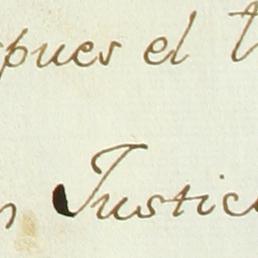 spues el t
n Justici